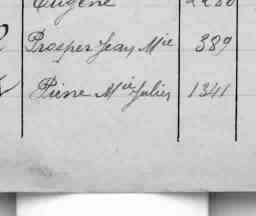 Eugène
Prosper Jean Mie 389
Pierre Mie Julien 1341